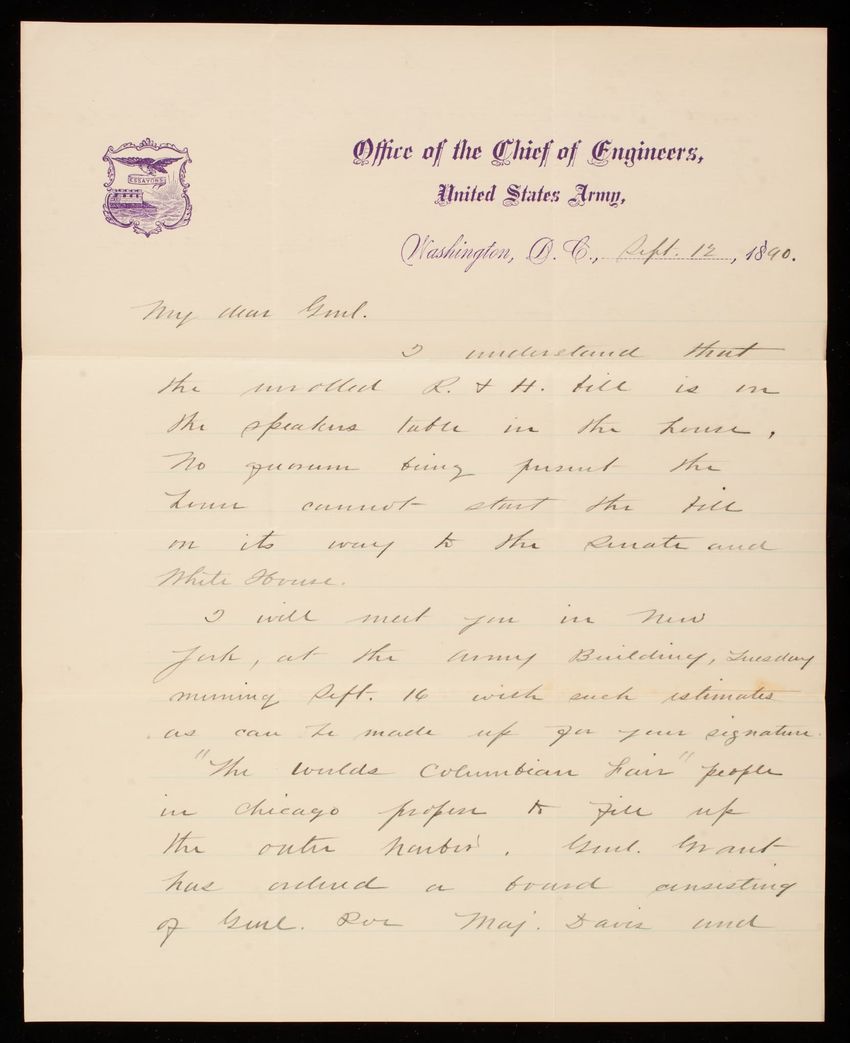 ESSAYONS
Office of the Chief of Engineers,
United States Army,
Washington, D. C., Sept. 12, 1890.
My dear Genl.
I understand that
the enrolled R. & H. bill is on
the speakers table in the house,
No quorum being present the
house cannot start the bill
on its way to the Senate and
White House.
I will meet you in New
York, at the Army Building, Tuesday
morning Sept. 16 with such estimates
as can be made up for your signature.
"The Worlds Columbian Fair" people
in Chicago propose to fill up
the outer harbor. Genl. Grant
has ordered a board consisting
of Genl. Poe Maj. Davis and